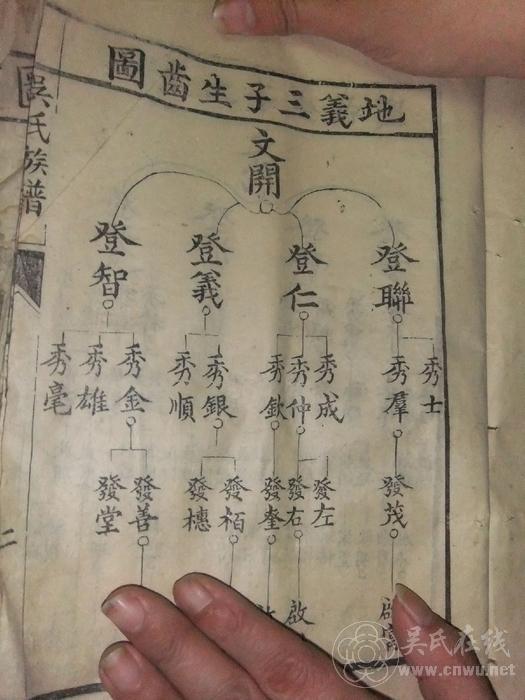 地義三子生齒圖
吳氏族譜
文開
登聯
登仁
登義
登智
秀士
秀羣
秀成
秀仲
秀欽
秀銀
秀順
秀金
秀雄
秀毫
發茂
發左
發右
發奎
發栢
發橞
發善
發堂
啟
啟
二
吳氏在线
www.cnwu.net